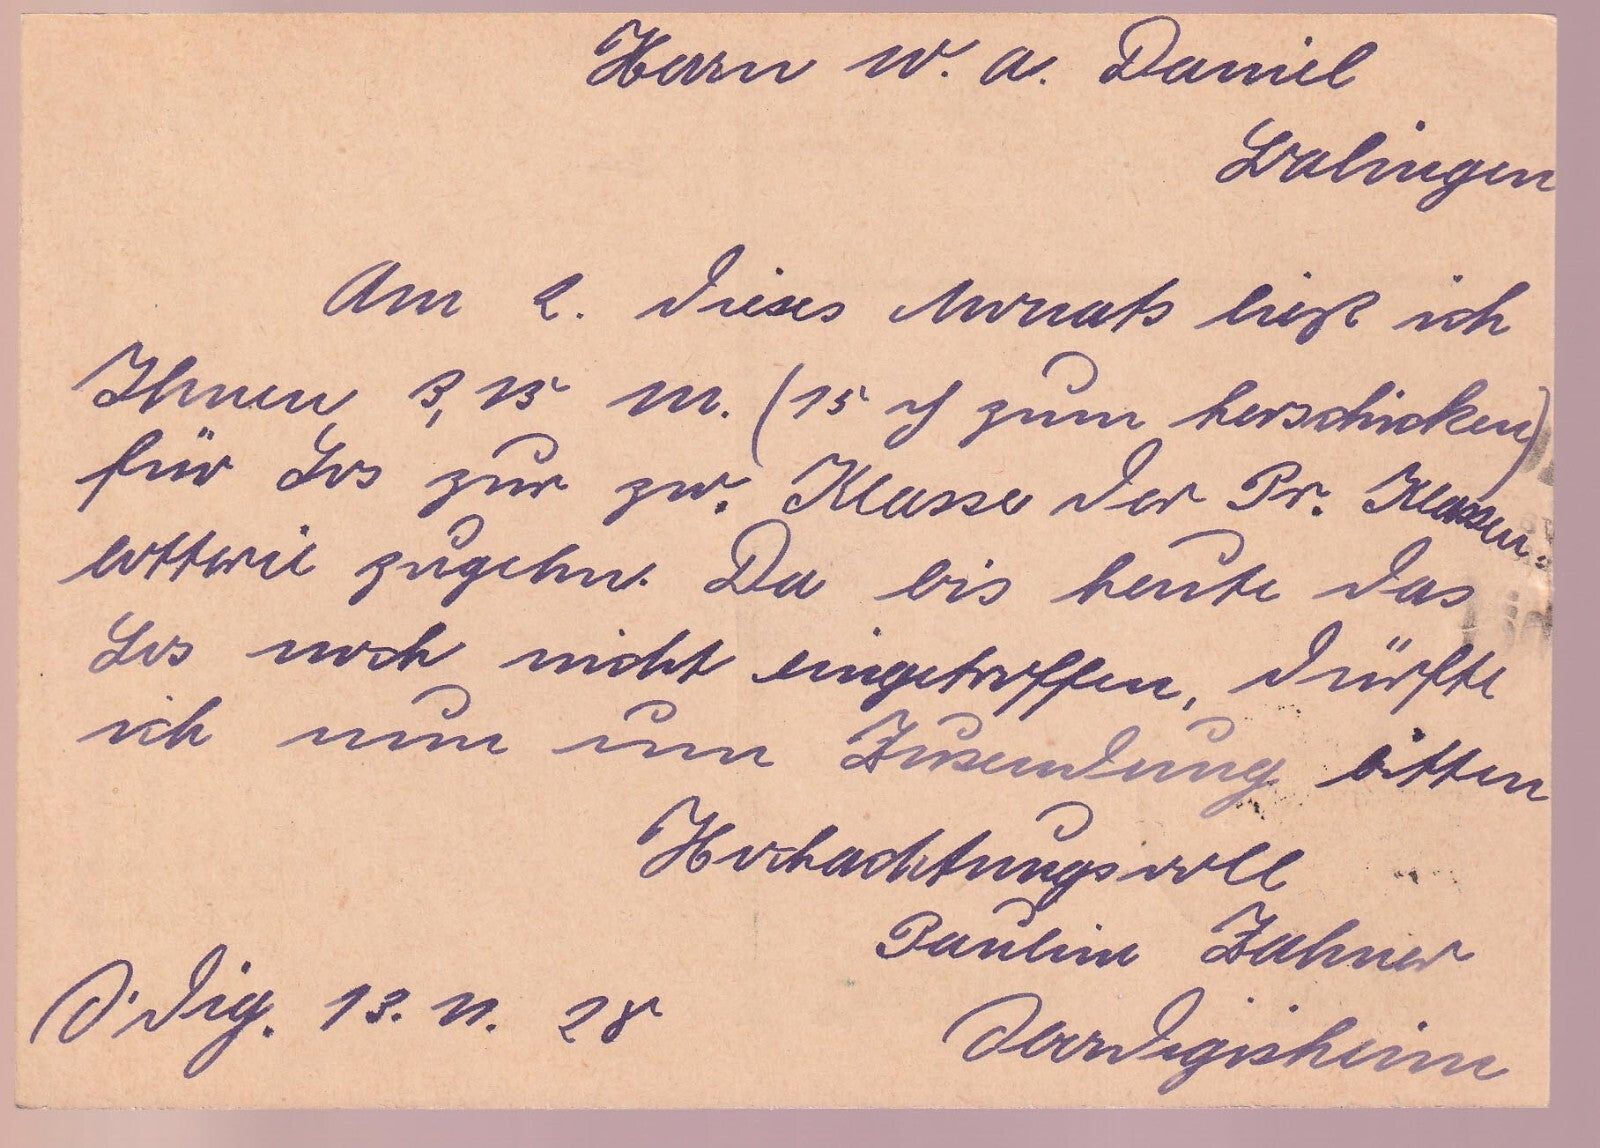 Herrn W. A. Daniel
Balingen
Am 2. dieses Monats ließ ich
Ihnen 3,15 M. (15 ₰ zum herschicken)
für Los zur zw. Klasse der Pr. Klassen-
lotterie zugehn. Da bis heute das
Los noch nicht eingetroffen, dürfte
ich nun um Zusendung bitten
Hochachtungsvoll
Pauline Zahner
O'dig. 13. 11. 28
Oberdigisheim